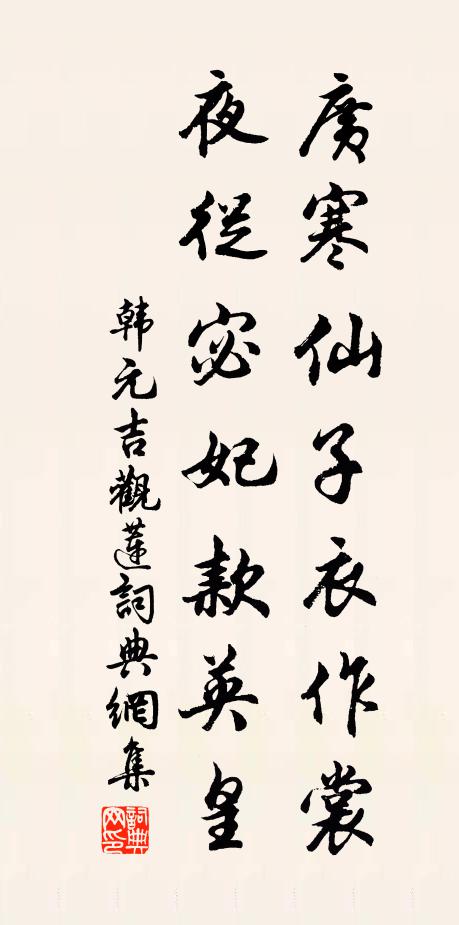 廣寒仙子衣作裳
夜從宓妃款英皇
韩元吉觀蓮詞典網集
詞典网印